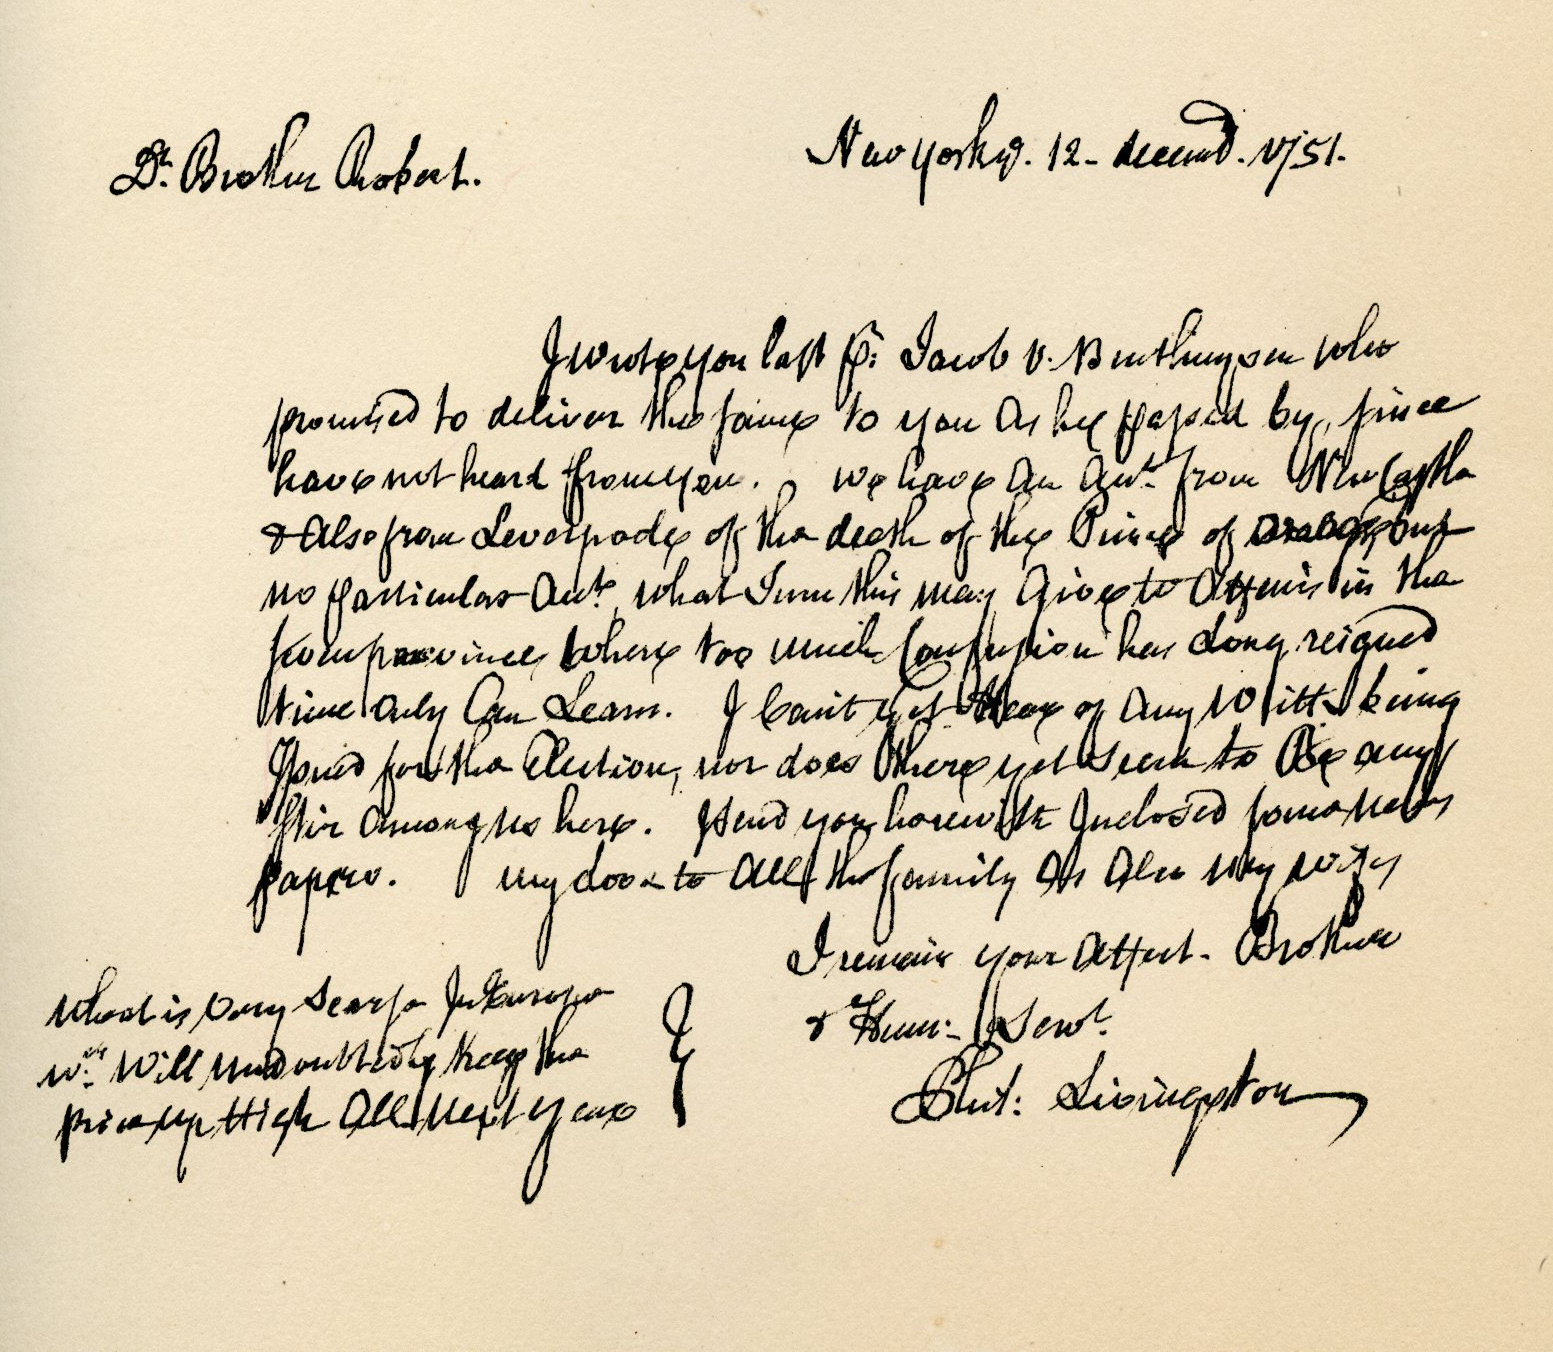 Dr. Brother Robert.
New york 12 - decemb. 1751.
I wrote you last pr. Jacob v. Benthuysen who
promised to deliver the same to you as he passed by, since
have not heard from you. we have an Acct. from New Castle
& Also from Leverpoole of the death of the Prince of orange but
no particular Acct. what Turn this may Give to Affairs in the
provinces where too much Confusion has Long reigned
time only Can Learn. I Can't yet Hear of Any Writts being
Issued for the Election, nor does there yet Seem to Be any
stir Among us here. I Send you herewith Inclosed some news
papers. my Love to All the family As Also my wifes
I remain your Affect. Brother
& Hum: Servt.
Phil: Livingston
wheat is very Scarse In Europe
wch. Will undoubtedly Keep the
price up High All Next year